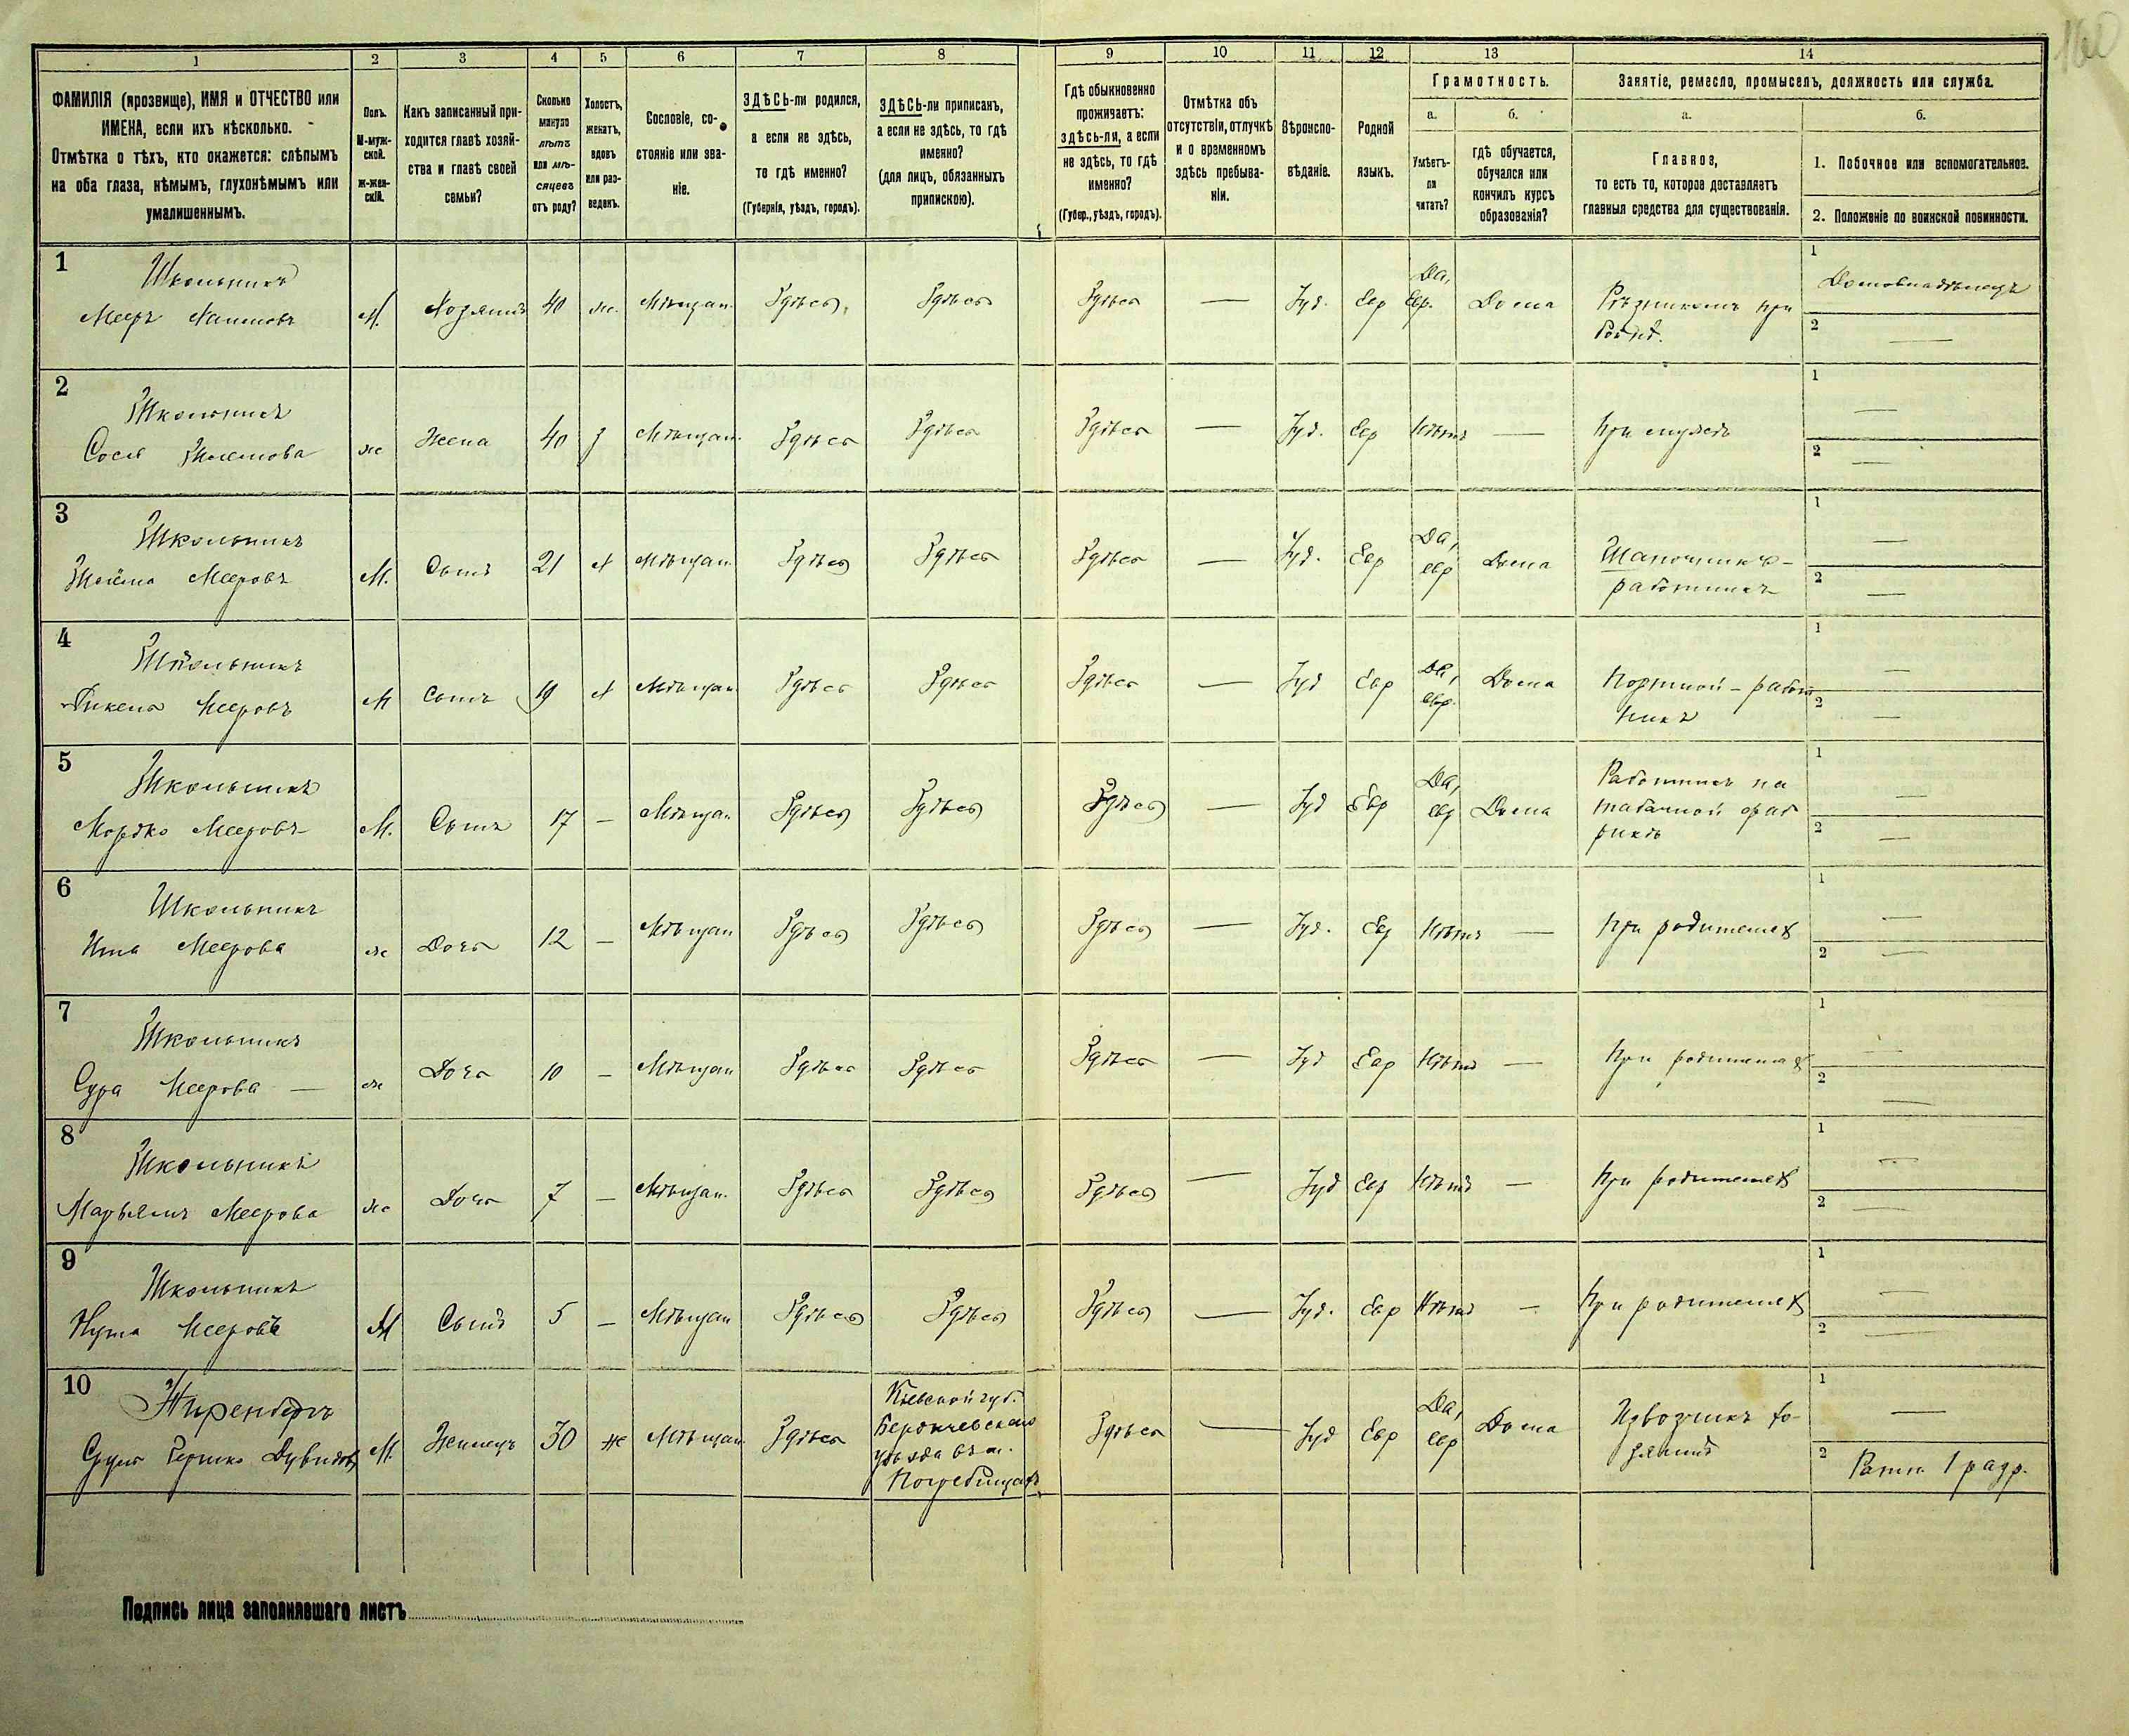 160
1 2 3 4 5 6 7 8 9 10 11 12 13 14
ФАМИЛІЯ (прозвище), ИМЯ и ОТЧЕСТВО или
ИМЕНА, если ихъ нѣсколько.
Отмѣтка о тѣхъ, кто окажется: слѣпымъ
на оба глаза, нѣмымъ, глухонѣмымъ или
умалишеннымъ.
Полъ.
М-муж-
ской.
Ж-жен-
скій.
Какъ записанный при-
ходится главѣ хозяй-
ства и главѣ своей
семьи?
Сколько
минуло
лѣтъ
или мѣ-
сяцевъ
отъ роду?
Холостъ,
женатъ,
вдовъ
или раз-
веденъ.
Сословіе, со-
стояніе или зва-
ніе.
ЗДѢСЬ-ли родился,
а если не здѣсь,
то гдѣ именно?
(Губернія, уѣздъ, городъ).
ЗДѢСЬ-ли приписанъ,
а если не здѣсь, то гдѣ
именно?
(для лицъ, обязанныхъ
припискою).
Гдѣ обыкновенно
проживаетъ:
здѣсь-ли, а если
не здѣсь, то гдѣ
именно?
(Губер., уѣздъ, городъ).
Отмѣтка объ
отсутствіи, отлучкѣ
и о временномъ
здѣсь пребыва-
ніи.
Вѣроиспо-
вѣданіе.
Родной
языкъ.
Грамотность.
а.
Умѣетъ-
ли
читать?
б.
гдѣ обучается,
обучался или
кончилъ курсъ
образованія?
Занятіе, ремесло, промыселъ, должность или служба.
а.
Главное,
то есть то, которое доставляетъ
главныя средства для существованія.
б.
1. Побочное или вспомогательное.
2. Положеніе по воинской повинности.
1
Школьникъ
Мееръ Хаимовъ
М. Хозяинъ 40 ж. Мѣщан. Здѣсь Здѣсь Здѣсь — Іуд. Евр Да, Евр. Дома Рѣзникомъ при
1 Домовладѣлецъ
2 —
2
Школьникъ
Сося
ж Жена 40 з Мѣщан. Здѣсь Здѣсь Здѣсь — Іуд. Евр Нѣтъ — При мужѣ
1 —
2 —
3
Школьникъ
Шлёма Мееровъ
М. Сынъ 21 х Мѣщан Здѣсь Здѣсь Здѣсь — Іуд. Евр Да, евр Дома Шапочникъ-
работникъ
1 —
2 —
4
Школьникъ
Мееровъ
М Сынъ 19 х Мѣщан Здѣсь Здѣсь Здѣсь — Іуд Евр Да, евр. Дома Портной - работ
никъ
1 —
2 —
5
Школьникъ
Мордко Мееровъ
М. Сынъ 17 — Мѣщан Здѣсь Здѣсь Здѣсь — Іуд Евр Да, евр Дома Работникъ на
табачной фаб
рикѣ
1 —
2 —
6
Школьникъ
Ита Меерова
ж Дочь 12 — Мѣщан Здѣсь Здѣсь Здѣсь — Іуд. Евр Нѣтъ — При родителях
1 —
2 —
7
Школьникъ
Сура Меерова —
ж Дочь 10 — Мѣщан Здѣсь Здѣсь Здѣсь — Іуд Евр Нѣтъ — При родителях
1 —
2 —
8
Школьникъ
Марьямъ Меерова
ж Дочь 7 — Мѣщан. Здѣсь Здѣсь Здѣсь — Іуд Евр Нѣтъ — При родителях
1 —
2 —
9
Школьникъ
Нута Мееровъ
М Сынъ 5 — Мѣщан Здѣсь Здѣсь Здѣсь — Іуд. Евр Нѣтъ — При родителях
1 —
2 —
10
Ниренбергъ
Сруль Гершко Дувидов
М. Жилецъ 30 ж Мѣщан Здѣсь
Кіевской губ.
Бердичевскаго
уѣзда въ м.
Погребищахъ
Здѣсь — Іуд Евр Да, евр Дома Извозчикъ хо-
зяинъ
1 —
2 Ратн. 1 разр.
Подпись лица заполнявшаго листъ